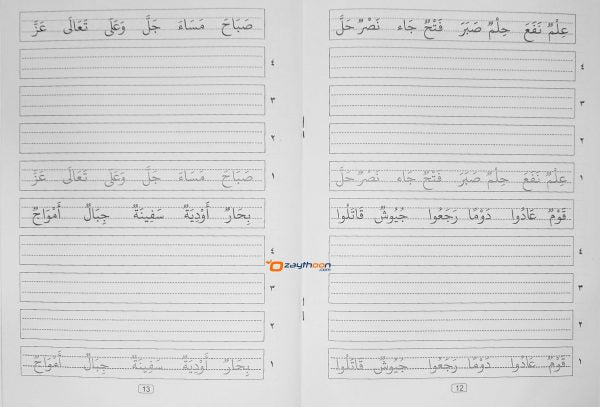 عِلْمٌ نَفَعَ حِلْمٌ صَبَرَ فَتْحٌ جَاء نَصْرٌ حَلَّ
٤
٣
٢
١ عِلْمٌ نَفَعَ حِلْمٌ صَبَرَ فَتْحٌ جَاء نَصْرٌ حَلَّ
قَوْمٌ عَادُوا دَوْمًا رَجَعُوا جُيُوشٌ قَاتَلُوا
٤
٣
٢
١ قَوْمٌ عَادُوا دَوْمًا رَجَعُوا جُيُوشٌ قَاتَلُوا
12
صَبَاحَ مَسَاءَ جَلَّ وَعَلَى تَعَالَى عَزَّ
٤
٣
٢
١ صَبَاحَ مَسَاءَ جَلَّ وَعَلَى تَعَالَى عَزَّ
بِحَارٌ أَوْدِيَةٌ سَفِينَةٌ جِبَالٌ أَمْوَاجٌ
٤
٣
٢
١ بِحَارٌ أَوْدِيَةٌ سَفِينَةٌ جِبَالٌ أَمْوَاجٌ
13
Ozaythoon.com